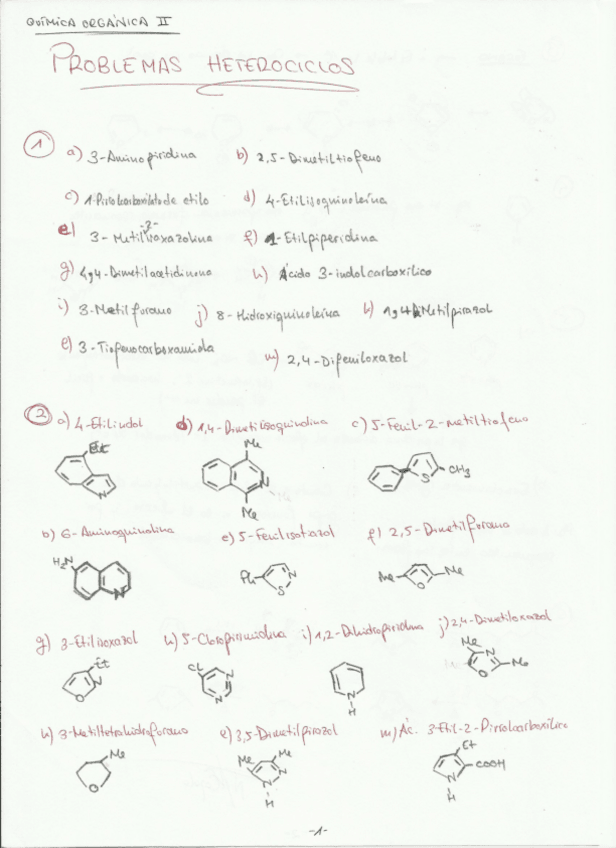 QUÍMICA ORGÁNICA II
PROBLEMAS HETEROCICLOS
1 a) 3-Aminopiridina b) 2,5-Dimetiltiofeno
c) 1-Pirrolcarboxilato de etilo d) 4-Etilisoquinoleína
e) 3-Metil-2-isoxazolina f) 1-Etilpiperidina
g) 4,4-Dimetilacetidinona h) Ácido 3-indolcarboxílico
i) 3-Metilfurano j) 8-Hidroxiquinoleína k) 1,4-Dimetilpirazol
l) 3-Tiofenocarboxamida m) 2,4-Difeniloxazol
2 a) 4-Etilindol d) 1,4-Dimetilisoquinolina c) 5-Fenil-2-metiltiofeno
Et Me N Me S CH3
N
b) 6-Aminoquinolina e) 5-Fenilisotiazol f) 2,5-Dimetilfurano
H2N N Ph S N Me O Me
g) 3-Etilisoxazol h) 5-Cloropirimidina i) 1,2-Dihidropiridina j) 2,4-Dimetiloxazol
Et N O Cl N N N H Me N O Me
k) 3-Metiltetrahidrofurano l) 3,5-Dimetilpirazol m) Ác. 3-Etil-2-Pirrolcarboxílico
Me O Me Me N N H Et COOH N H
-1-